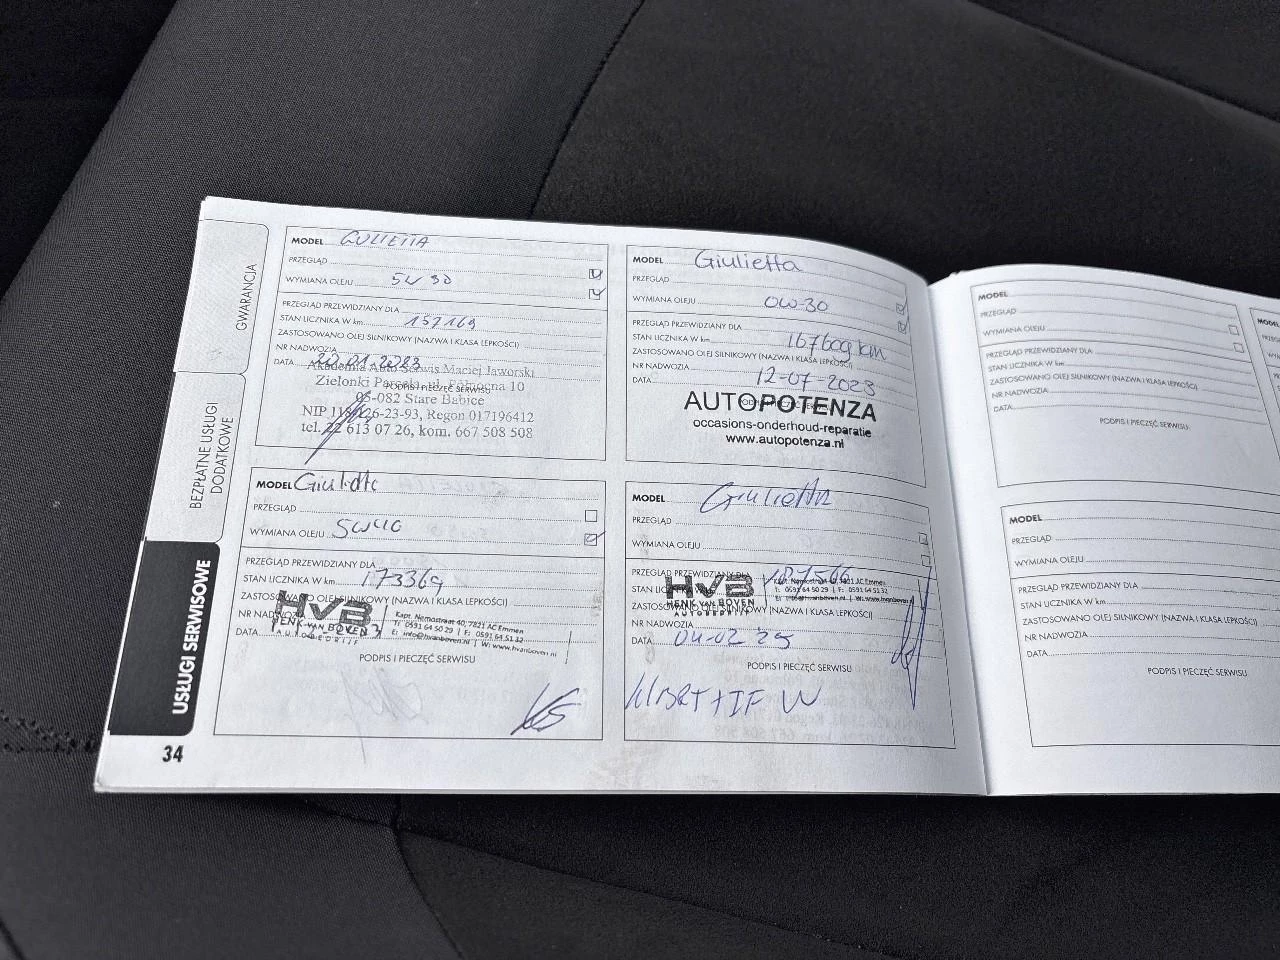 GWARANCJA
BEZPŁATNE USŁUGI
DODATKOWE
USŁUGI SERWISOWE
34
MODEL GULIETTA
PRZEGLĄD
WYMIANA OLEJU 5W30
PRZEGLĄD PRZEWIDZIANY DLA
STAN LICZNIKA W km 157169
ZASTOSOWANO OLEJ SILNIKOWY (NAZWA I KLASA LEPKOŚCI)
NR NADWOZIA
DATA 20.01.2023
PODPIS I PIECZĘĆ SERWISU
Akademia Auto Serwis Maciej Jaworski
Zielonki Parcela, ul. Północna 10
05-082 Stare Babice
23-93, Regon 017196412
tel. 22 613 07 26, kom. 667 508 508
MODEL Giulietta
PRZEGLĄD
WYMIANA OLEJU 0W-30
PRZEGLĄD PRZEWIDZIANY DLA
STAN LICZNIKA W km 167609 km
ZASTOSOWANO OLEJ SILNIKOWY (NAZWA I KLASA LEPKOŚCI)
NR NADWOZIA
DATA 12-07-2023
PODPIS I PIECZĘĆ SERWISU
AUTOPOTENZA
occasions-onderhoud-reparatie
www.autopotenza.nl
MODEL
PRZEGLĄD
WYMIANA OLEJU
PRZEGLĄD PRZEWIDZIANY DLA
STAN LICZNIKA W km 173369
ZASTOSOWANO OLEJ SILNIKOWY (NAZWA I KLASA LEPKOŚCI)
NR NADWOZIA
DATA
HvB
HENK VAN BOVEN
AUTOBEDRIJF
Kapt. Nemostraat 40, 7821 AC Emmen
T: 0591 64 50 29 | F: 0591 64 51 32
E: info@hvanboven.nl | W: www.hvanboven.nl
PODPIS I PIECZĘĆ SERWISU
MODEL Giulietta
PRZEGLĄD
WYMIANA OLEJU
PRZEGLĄD PRZEWIDZIANY DLA
STAN LICZNIKA W km
ZASTOSOWANO OLEJ SILNIKOWY (NAZWA I KLASA LEPKOŚCI)
NR NADWOZIA
DATA 04-02 25
HvB
HENK VAN BOVEN
AUTOBEDRIJF
Kapt. Nemostraat 40, 7821 AC Emmen
T: 0591 64 50 29 | F: 0591 64 51 32
E: info@hvanboven.nl | W: www.hvanboven.nl
PODPIS I PIECZĘĆ SERWISU
MODEL
PRZEGLĄD
WYMIANA OLEJU
PRZEGLĄD PRZEWIDZIANY DLA
STAN LICZNIKA W km
ZASTOSOWANO OLEJ SILNIKOWY (NAZWA I KLASA LEPKOŚCI)
NR NADWOZIA
DATA
PODPIS I PIECZĘĆ SERWISU
MODEL
MODEL
PRZEGLĄD
WYMIANA OLEJU
PRZEGLĄD PRZEWIDZIANY DLA
STAN LICZNIKA W km
ZASTOSOWANO OLEJ SILNIKOWY (NAZWA I KLASA LEPKOŚCI)
NR NADWOZIA
DATA
PODPIS I PIECZĘĆ SERWISU